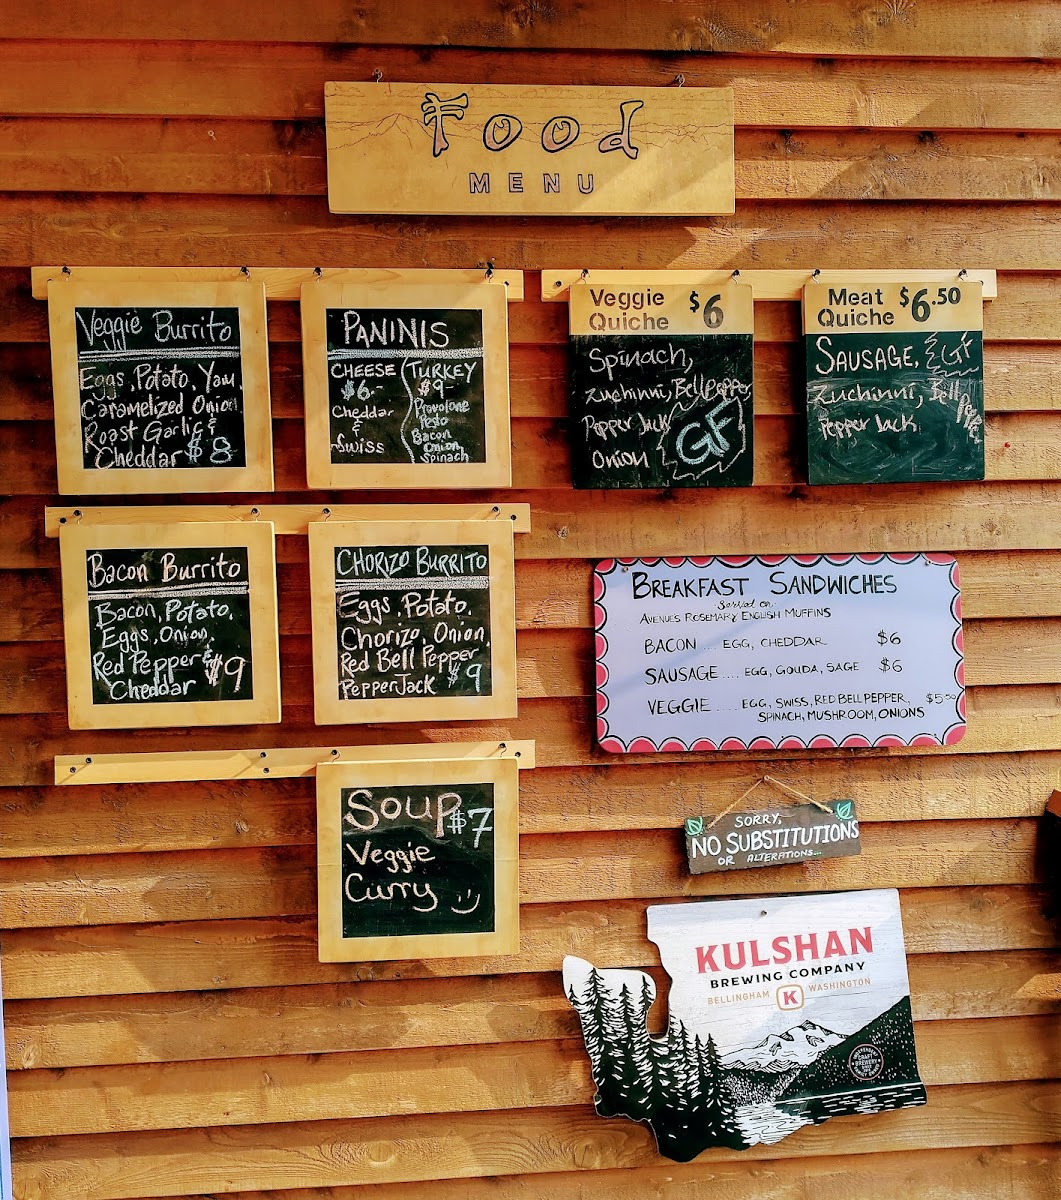 Food
MENU
Veggie Burrito
Eggs, Potato, Yam,
Caramelized Onion
Roast Garlic &
Cheddar $8
PANINIS
CHEESE
$6.-
Cheddar
&
Swiss
TURKEY
$9-
Provolone
Pesto
Bacon
Onion
Spinach
Veggie $6
Quiche
Spinach,
Zuchinni, Bell Pepper,
Pepper Jack
Onion
GF
Meat $6.50
Quiche
SAUSAGE, GF
Zuchinni, Bell
Pepper
Pepper Jack
Bacon Burrito
Bacon, Potato,
Eggs, Onion,
Red Pepper &
Cheddar $9
CHORIZO BURRITO
Eggs, Potato,
Chorizo, Onion,
Red Bell Pepper
PepperJack $9
BREAKFAST SANDWICHES
Served on:
AVENUES ROSEMARY ENGLISH MUFFINS
BACON .... EGG, CHEDDAR $6
SAUSAGE .... EGG, GOUDA, SAGE $6
VEGGIE .... EGG, SWISS, RED BELL PEPPER, $5.50
SPINACH, MUSHROOM, ONIONS
Soup $7
Veggie
Curry
SORRY,
NO SUBSTITUTIONS
OR ALTERATIONS...
KULSHAN
BREWING COMPANY
BELLINGHAM K WASHINGTON
CRAFT
BREWERY